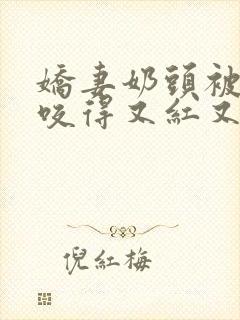 嬌妻奶頭被
咬得又紅又
倪紅梅